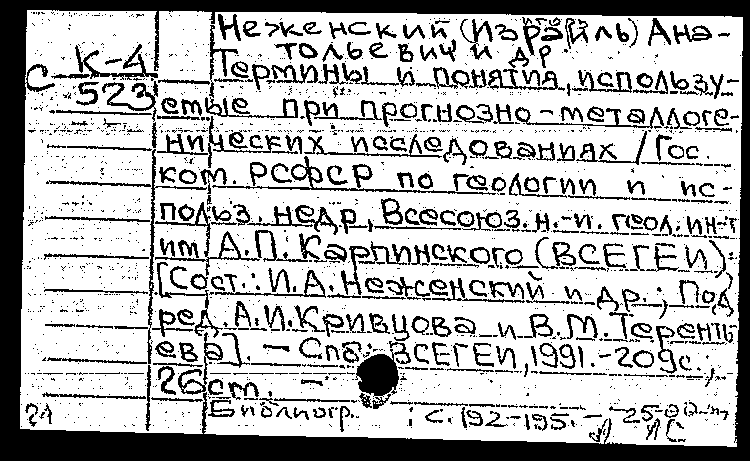 Неженский (Израйль) Ана-
тольевич и др
К-4
Термины и понятия, использу-
С
523
емые при прогнозно-металлоге-
нических исследованиях / Гос.
ком. РСФСР по геологии и ис-
польз. недр, Всесоюз. н.-и. геол. ин-т
им. А.П. Карпинского (ВСЕГЕИ);
[Сост.: И.А. Неженский и др.; Под
ред. А.И. Кривцова и В.М. Теренть
ева]. – Спб.: ВСЕГЕИ, 1991.-209с.,
26см. –
Библиогр. : с. 192-195. –